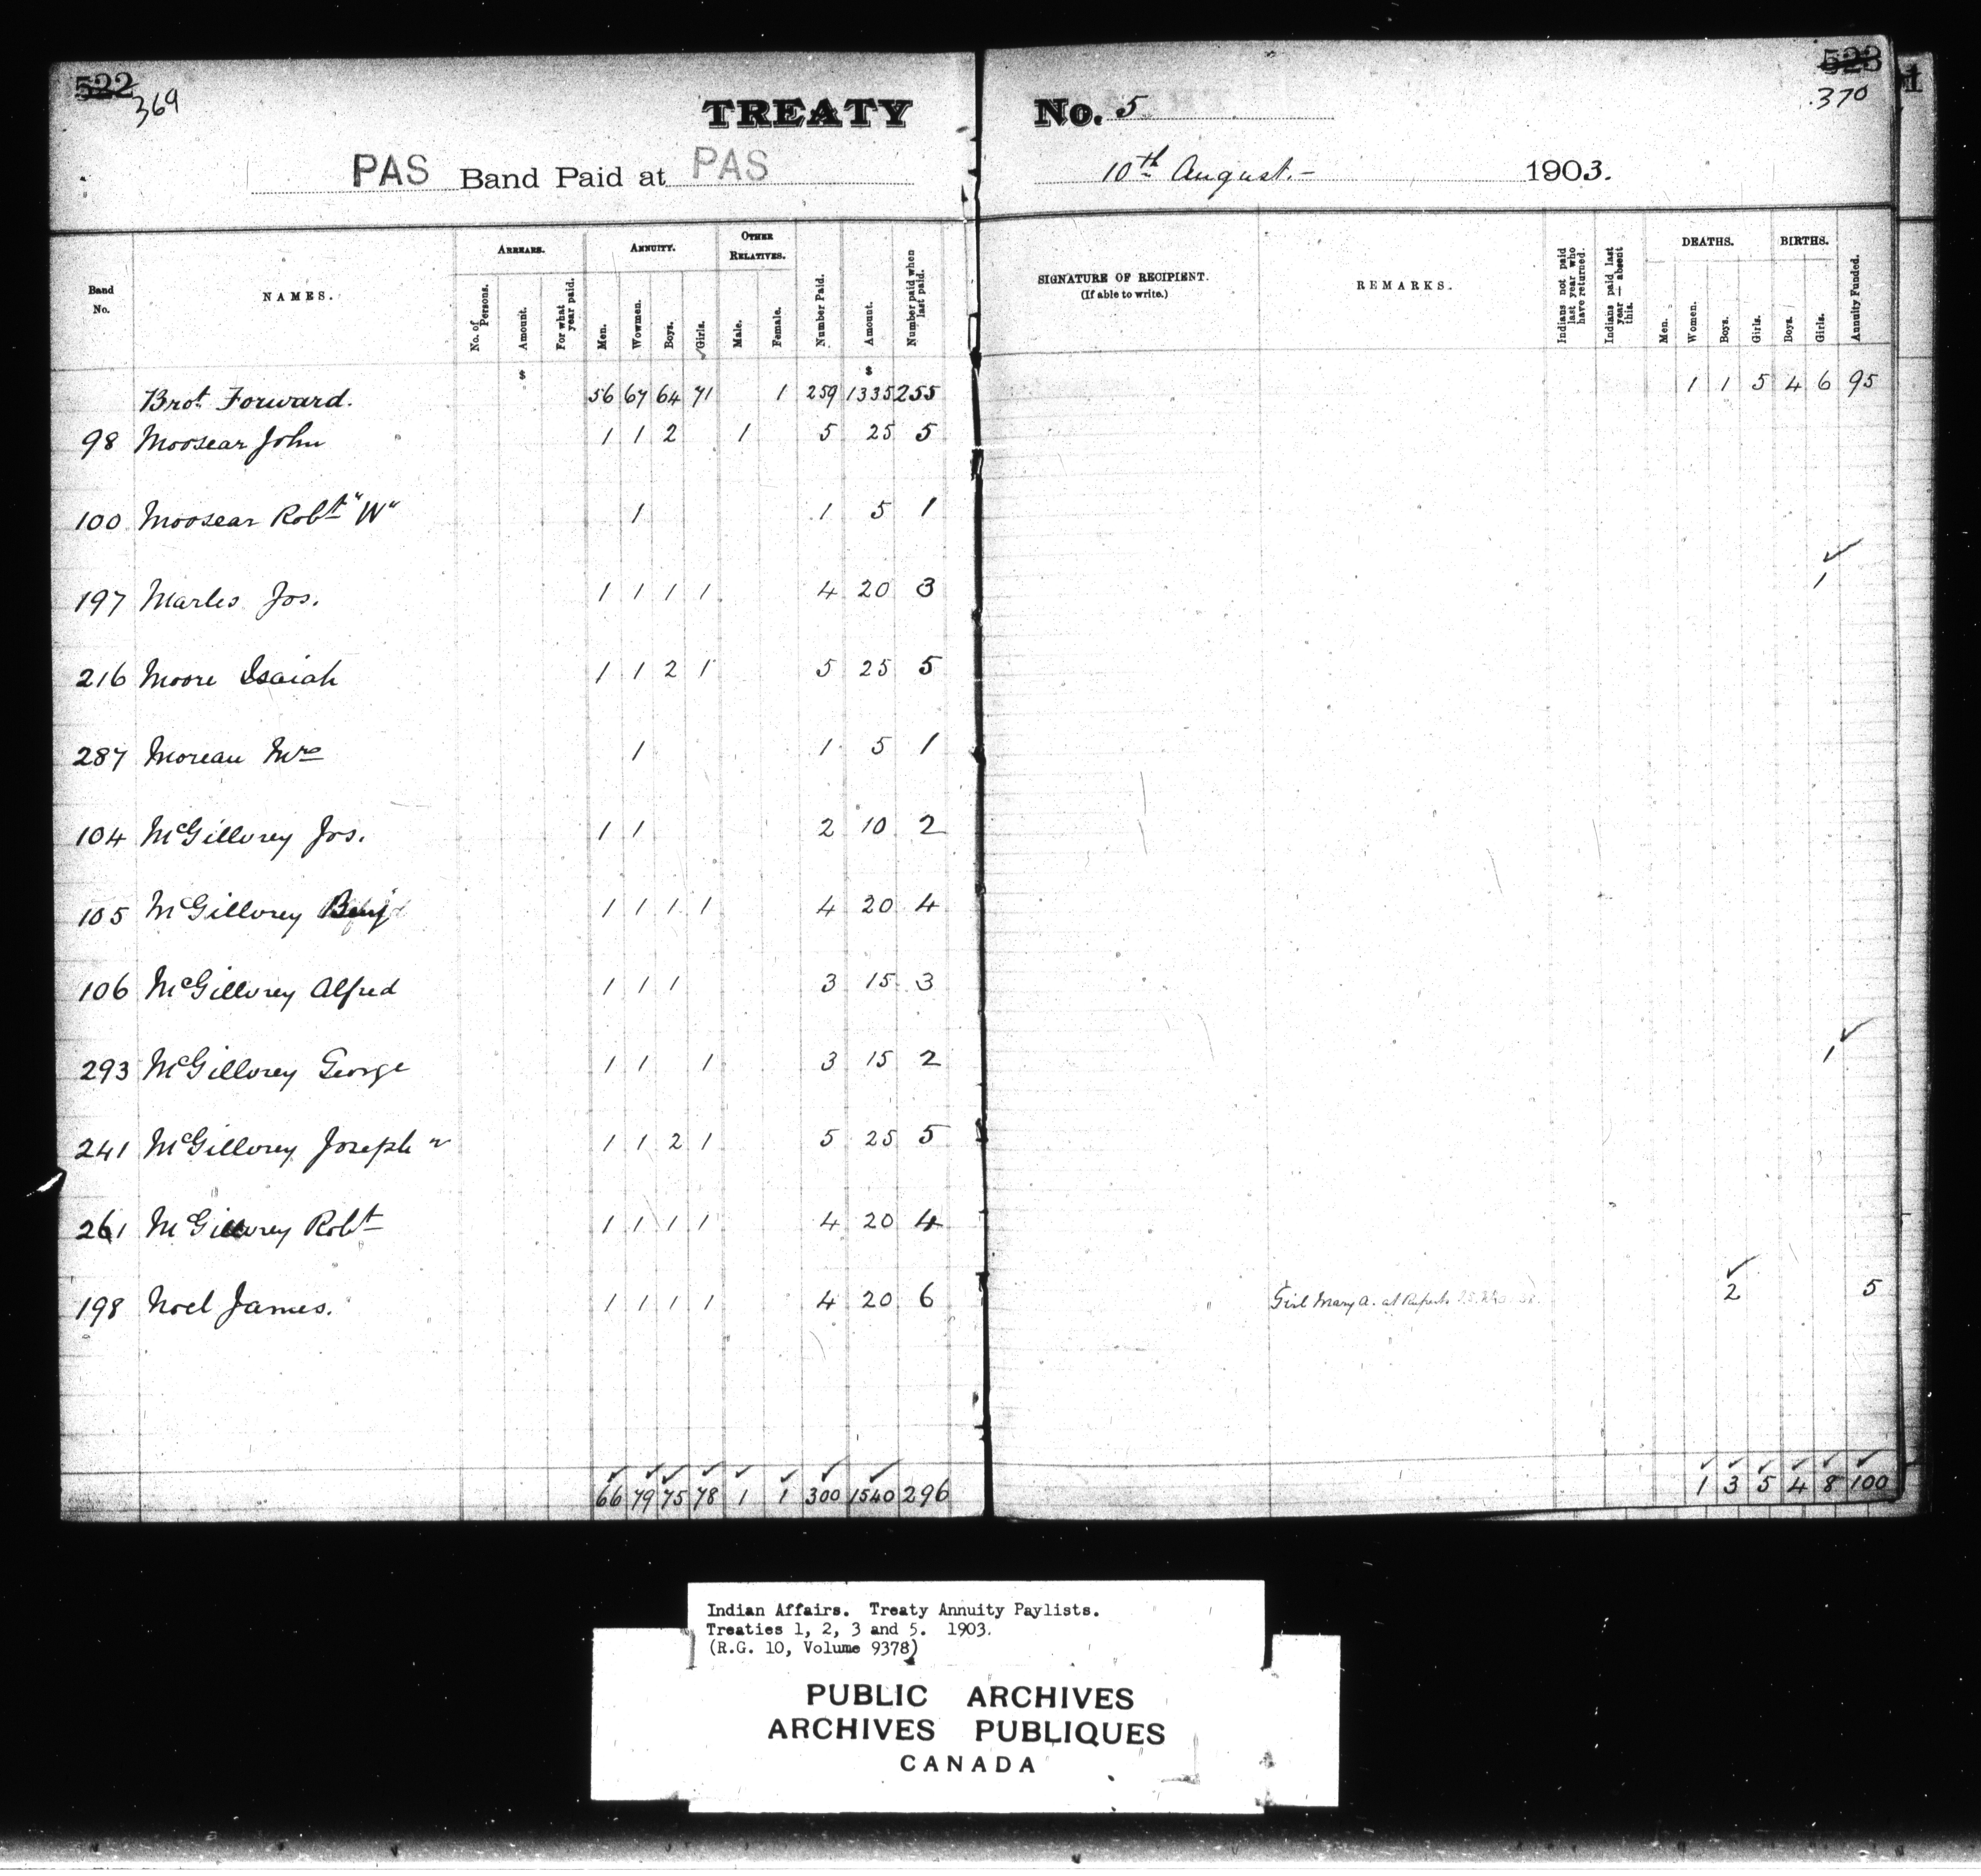 522 369 TREATY No. 5 523 370
PAS Band Paid at PAS 10th August.- 1903.
Band No. NAMES. ARREARS. No. of Persons. Amount. For what year paid. ANNUITY. Men. Wowmen. Boys. Girls. OTHER RELATIVES. Male. Female. Number Paid. Amount. Number paid when last paid. SIGNATURE OF RECIPIENT. (If able to write.) REMARKS. Indians not paid last year who have returned. Indians paid last year — absent this. DEATHS. Men. Women. Boys. Girls. BIRTHS. Boys. Girls. Annuity Funded.
$ $
Brot Forward. 56 67 64 71 1 259 1335 255 1 1 5 4 6 95
98 Moosear John 1 1 2 1 5 25 5
100 Moosear Robt "W" 1 1 5 1
197 Marles Jos. 1 1 1 1 4 20 3 1
216 Moore Isaiah 1 1 2 1 5 25 5
287 Moreau Mrs 1 1 5 1
104 McGillvrey Jos. 1 1 2 10 2
105 McGillvrey Benj 1 1 1 1 4 20 4
106 McGillvrey Alfred 1 1 1 3 15 3
293 McGillvrey George 1 1 1 3 15 2 1
241 McGillvrey Joseph 1 1 2 1 5 25 5
261 McGillvrey Robt 1 1 1 1 4 20 4
198 Noel James. 1 1 1 1 4 20 6 Girl Mary A. at 2 5
66 79 75 78 1 1 300 1540 296 1 3 5 4 8 100
Indian Affairs. Treaty Annuity Paylists.
Treaties 1, 2, 3 and 5. 1903.
(R.G. 10, Volume 9378)
PUBLIC ARCHIVES
ARCHIVES PUBLIQUES
CANADA